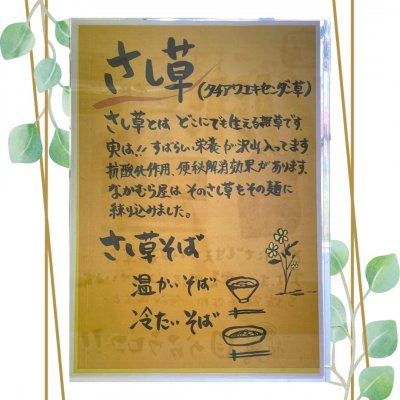 さし草
(タチアワユキセンダン草)
さし草とは どこにでも生える雑草です
実は!! すばらしい栄養が沢山入ってます
抗酸化作用、便秘解消効果があります。
なかむら屋は そのさし草をその麺に
練り込みました。
さし草そば
温かいそば
冷たいそば